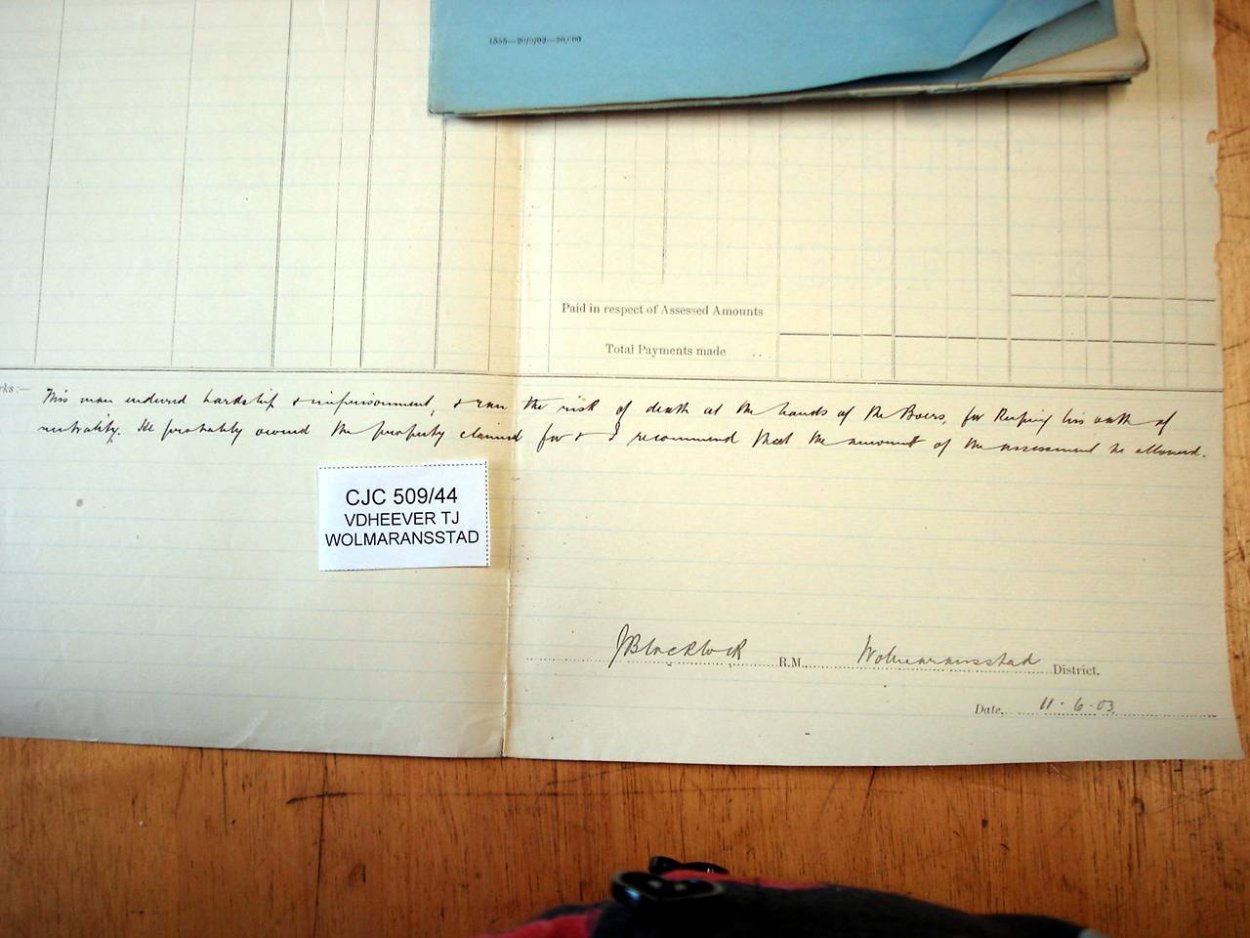 1555—20/3/03—20,000
Paid in respect of Assessed Amounts
Total Payments made ...
rks:— This man endured hardship & imprisonment, & ran the risk of death at the hands of the Boers, for keeping his oath of
neutrality. He probably owned the property claimed for & I recommend that the amount of the assessment be allowed.
CJC 509/44
VDHEEVER TJ
WOLMARANSSTAD
JBlacklock R.M. Wolmaransstad District.
Date, 11-6-03